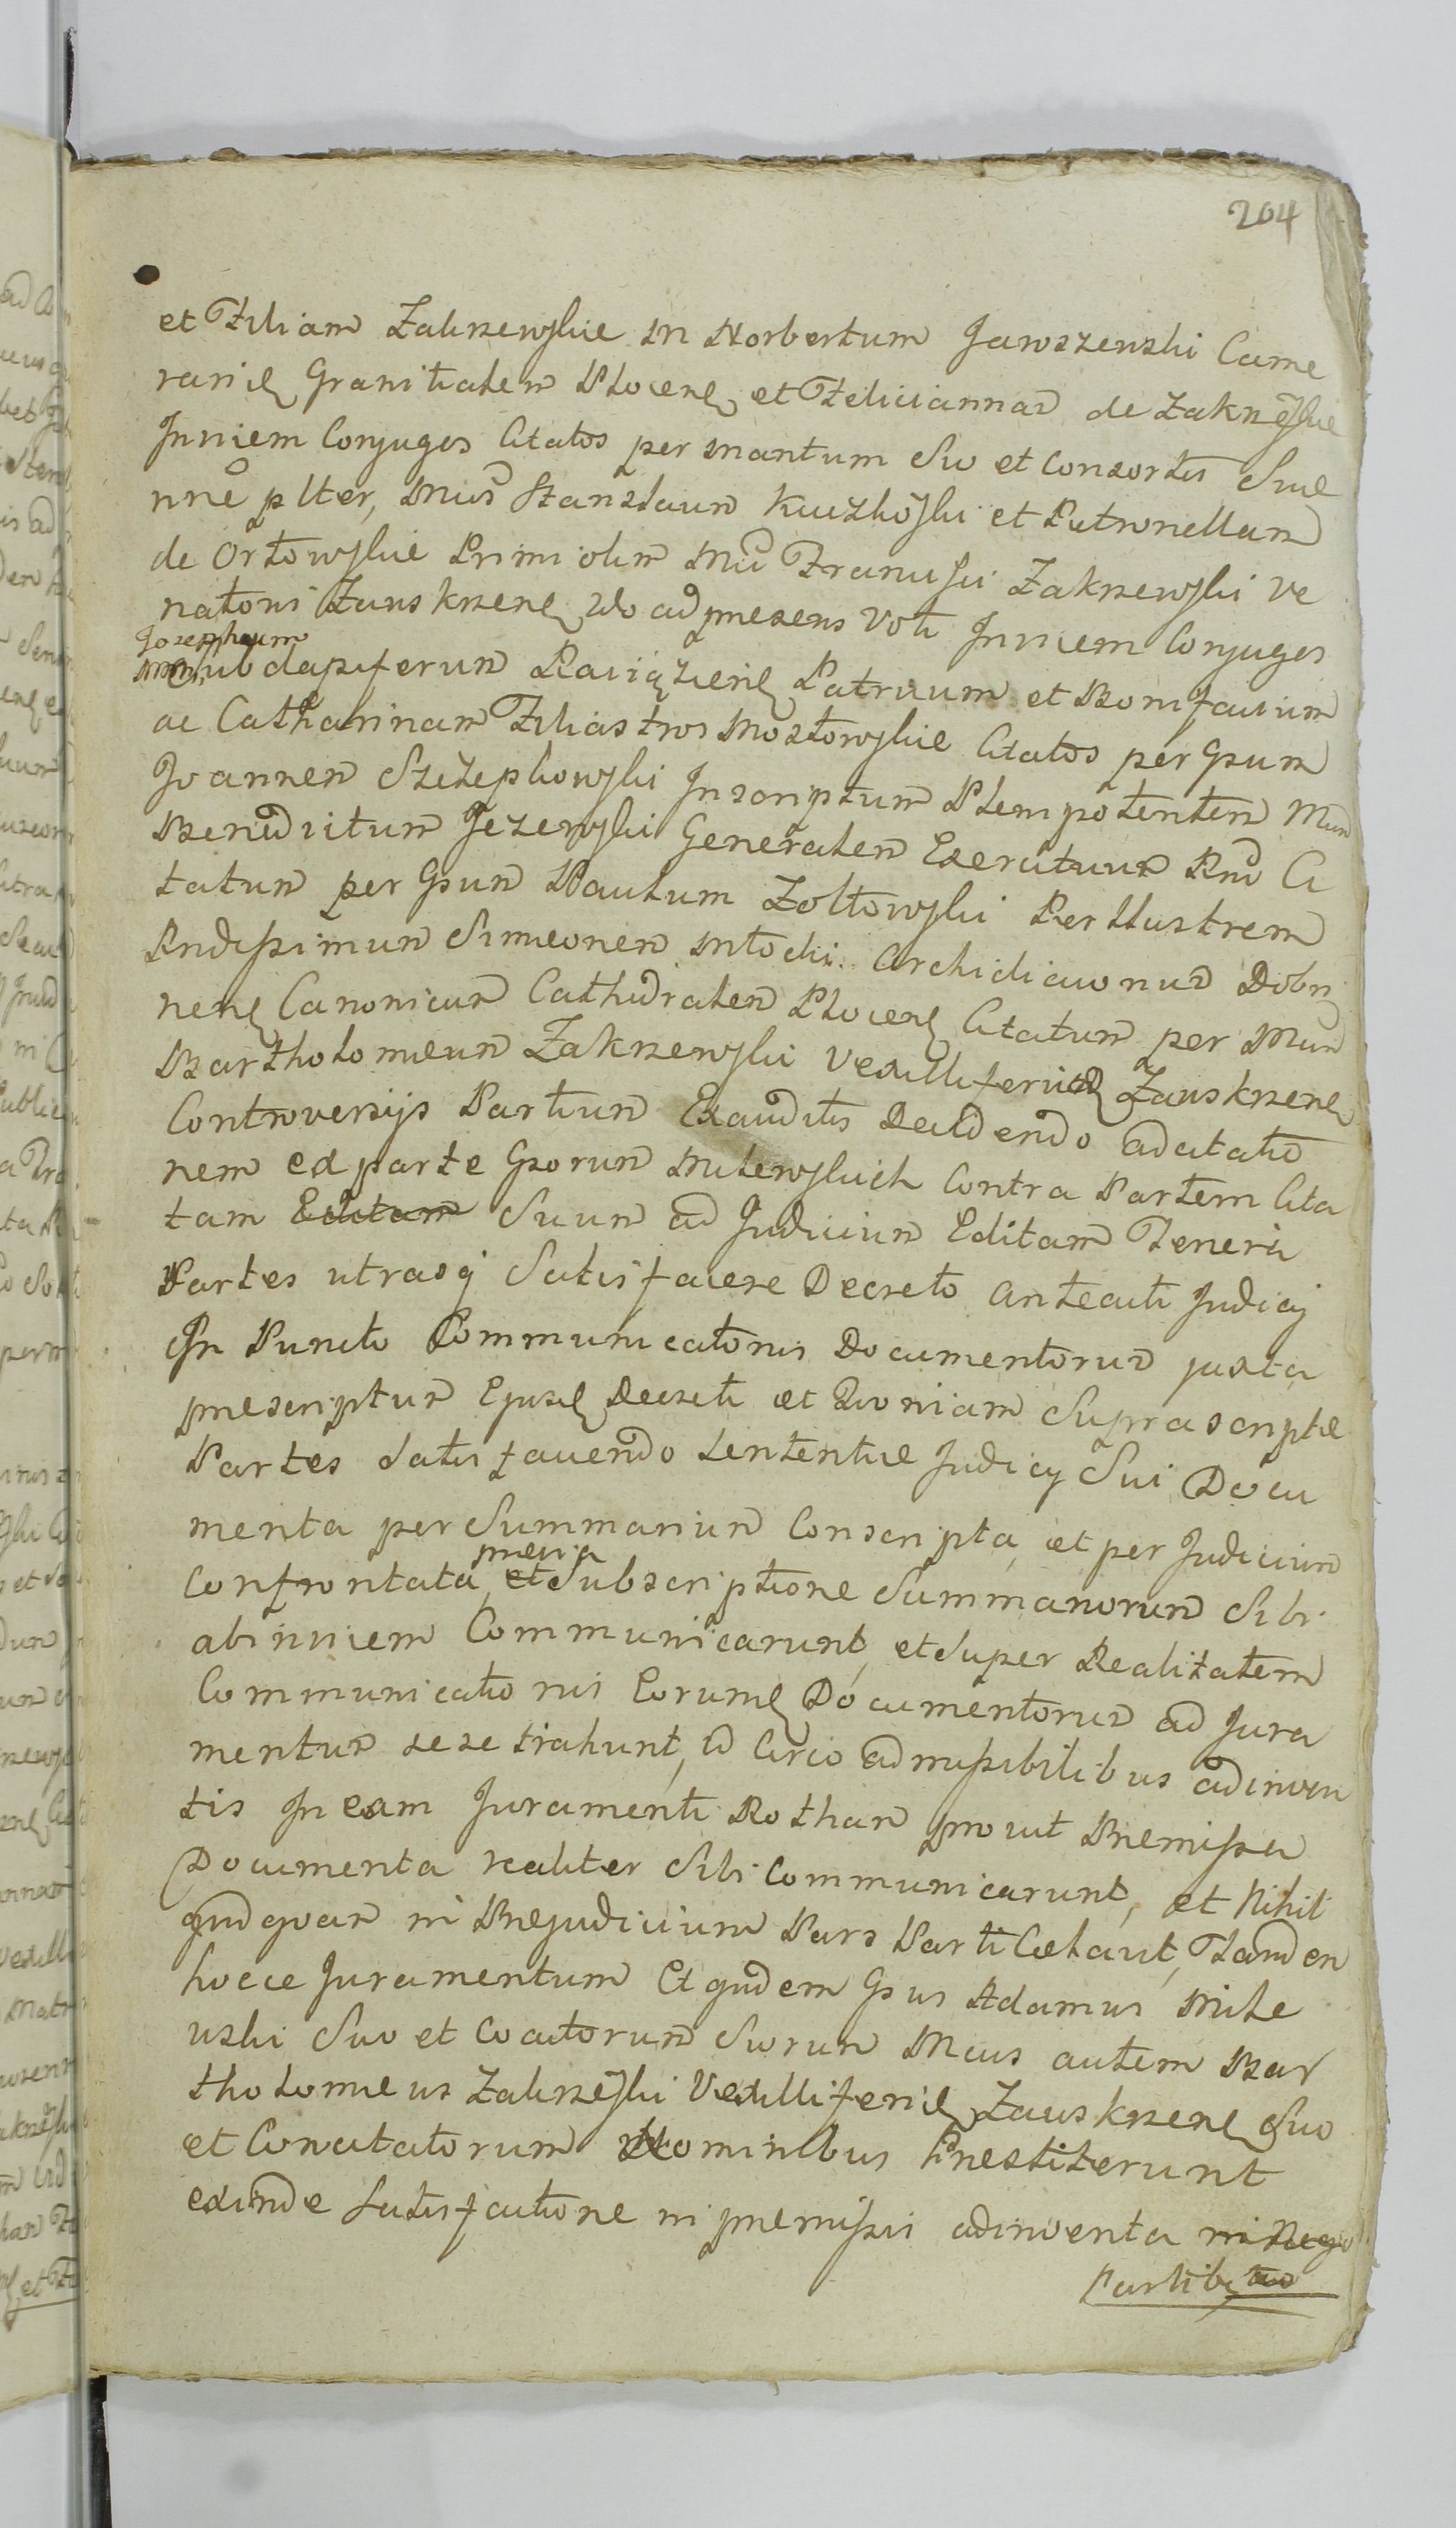 204
et Filiam Zakrzewskie m Norbertum Jaroszewski Came
rarium Granitialem Plocens et Feliciannam de Zakrzeskie
Inviem Conjuges Citatos per maritum Suo et Consortis Sue
nne plter, Mm Stanislaum Kuczkoski et Petronellam
de Ortowskie Primi olim Mci Francisci Zakrzewski Ve
natori Zauskrzens 2do ad presens Voti Inviem Conjuges
Josephum
Subdapiferum Raviąziens Patruum et Bonifacium
ac Catharinam Filiastros Mostowskie Citatos per Gsum
Joannem Szczepkowski Inscriptum Plempotentem Mum
Benedictum Jezewski Generalem Exercituum Rni Ci
tatum per Gsum Paulum Zoltowski Perillustrem
Rndissimum Simeonem Mlocki Archidiaconum Dobri
nens Canonicum Cathedralem Plocens Citatum per Mum
Bartholomeum Zakrzewski Vexilliferum Zauskrzens
Controversijs Partium Exauditis Decidendo ad citatio
nem ex parte Gsorum Milewskich Contra Partem Cita
tam Editam Suum ad Judicium Editam Teneri
Partes utrasq Satisfacere Decreto Anteacti Judicij
In Puncto Communicationis Documentorum juxta
prescriptum Ejusd Decreti et Quoniam Suprascripte
Partes Satisfaciendo Sententie Judicij Sui Docu
menta per Summarium Conscripta, et per Judicium
previa
Confrontata, et Subscriptione Summariorum Sibi
abinviem Communicarunt, et Super Realitatem
Communicationis Eorumd Documentorum ad Jura
mentum sese trahunt, id Circo admissibilibus adinven
tis In eam Juramenti Rotham prout Premissa
Documenta realiter Sibi Communicarunt, et Nihil
quidquam in Prejudicium Pars Parti Celavit, Tandem
hocce Juramentum Et quidem Gsus Adamus Mile
wski Suo et Cocitorum Suorum Mcus autem Bar
tholomeus Zakrzeski Vexillifer Zauskrzens Suo
et Concitatorum Nominibus Prestiterunt
exinde Satisfactione in premissis adinventa in Nego
Partibus